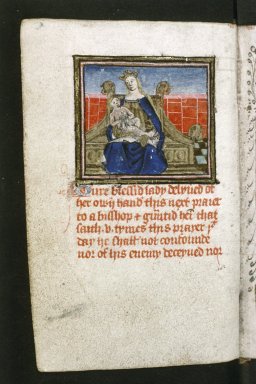 Oure blessid lady delyued of
her owń hand this next praier
to a bisshop & gūntid her that
saith .v. tymes this prayer yͤ
day he shall not confounde
nor of his enemy deceyued nor